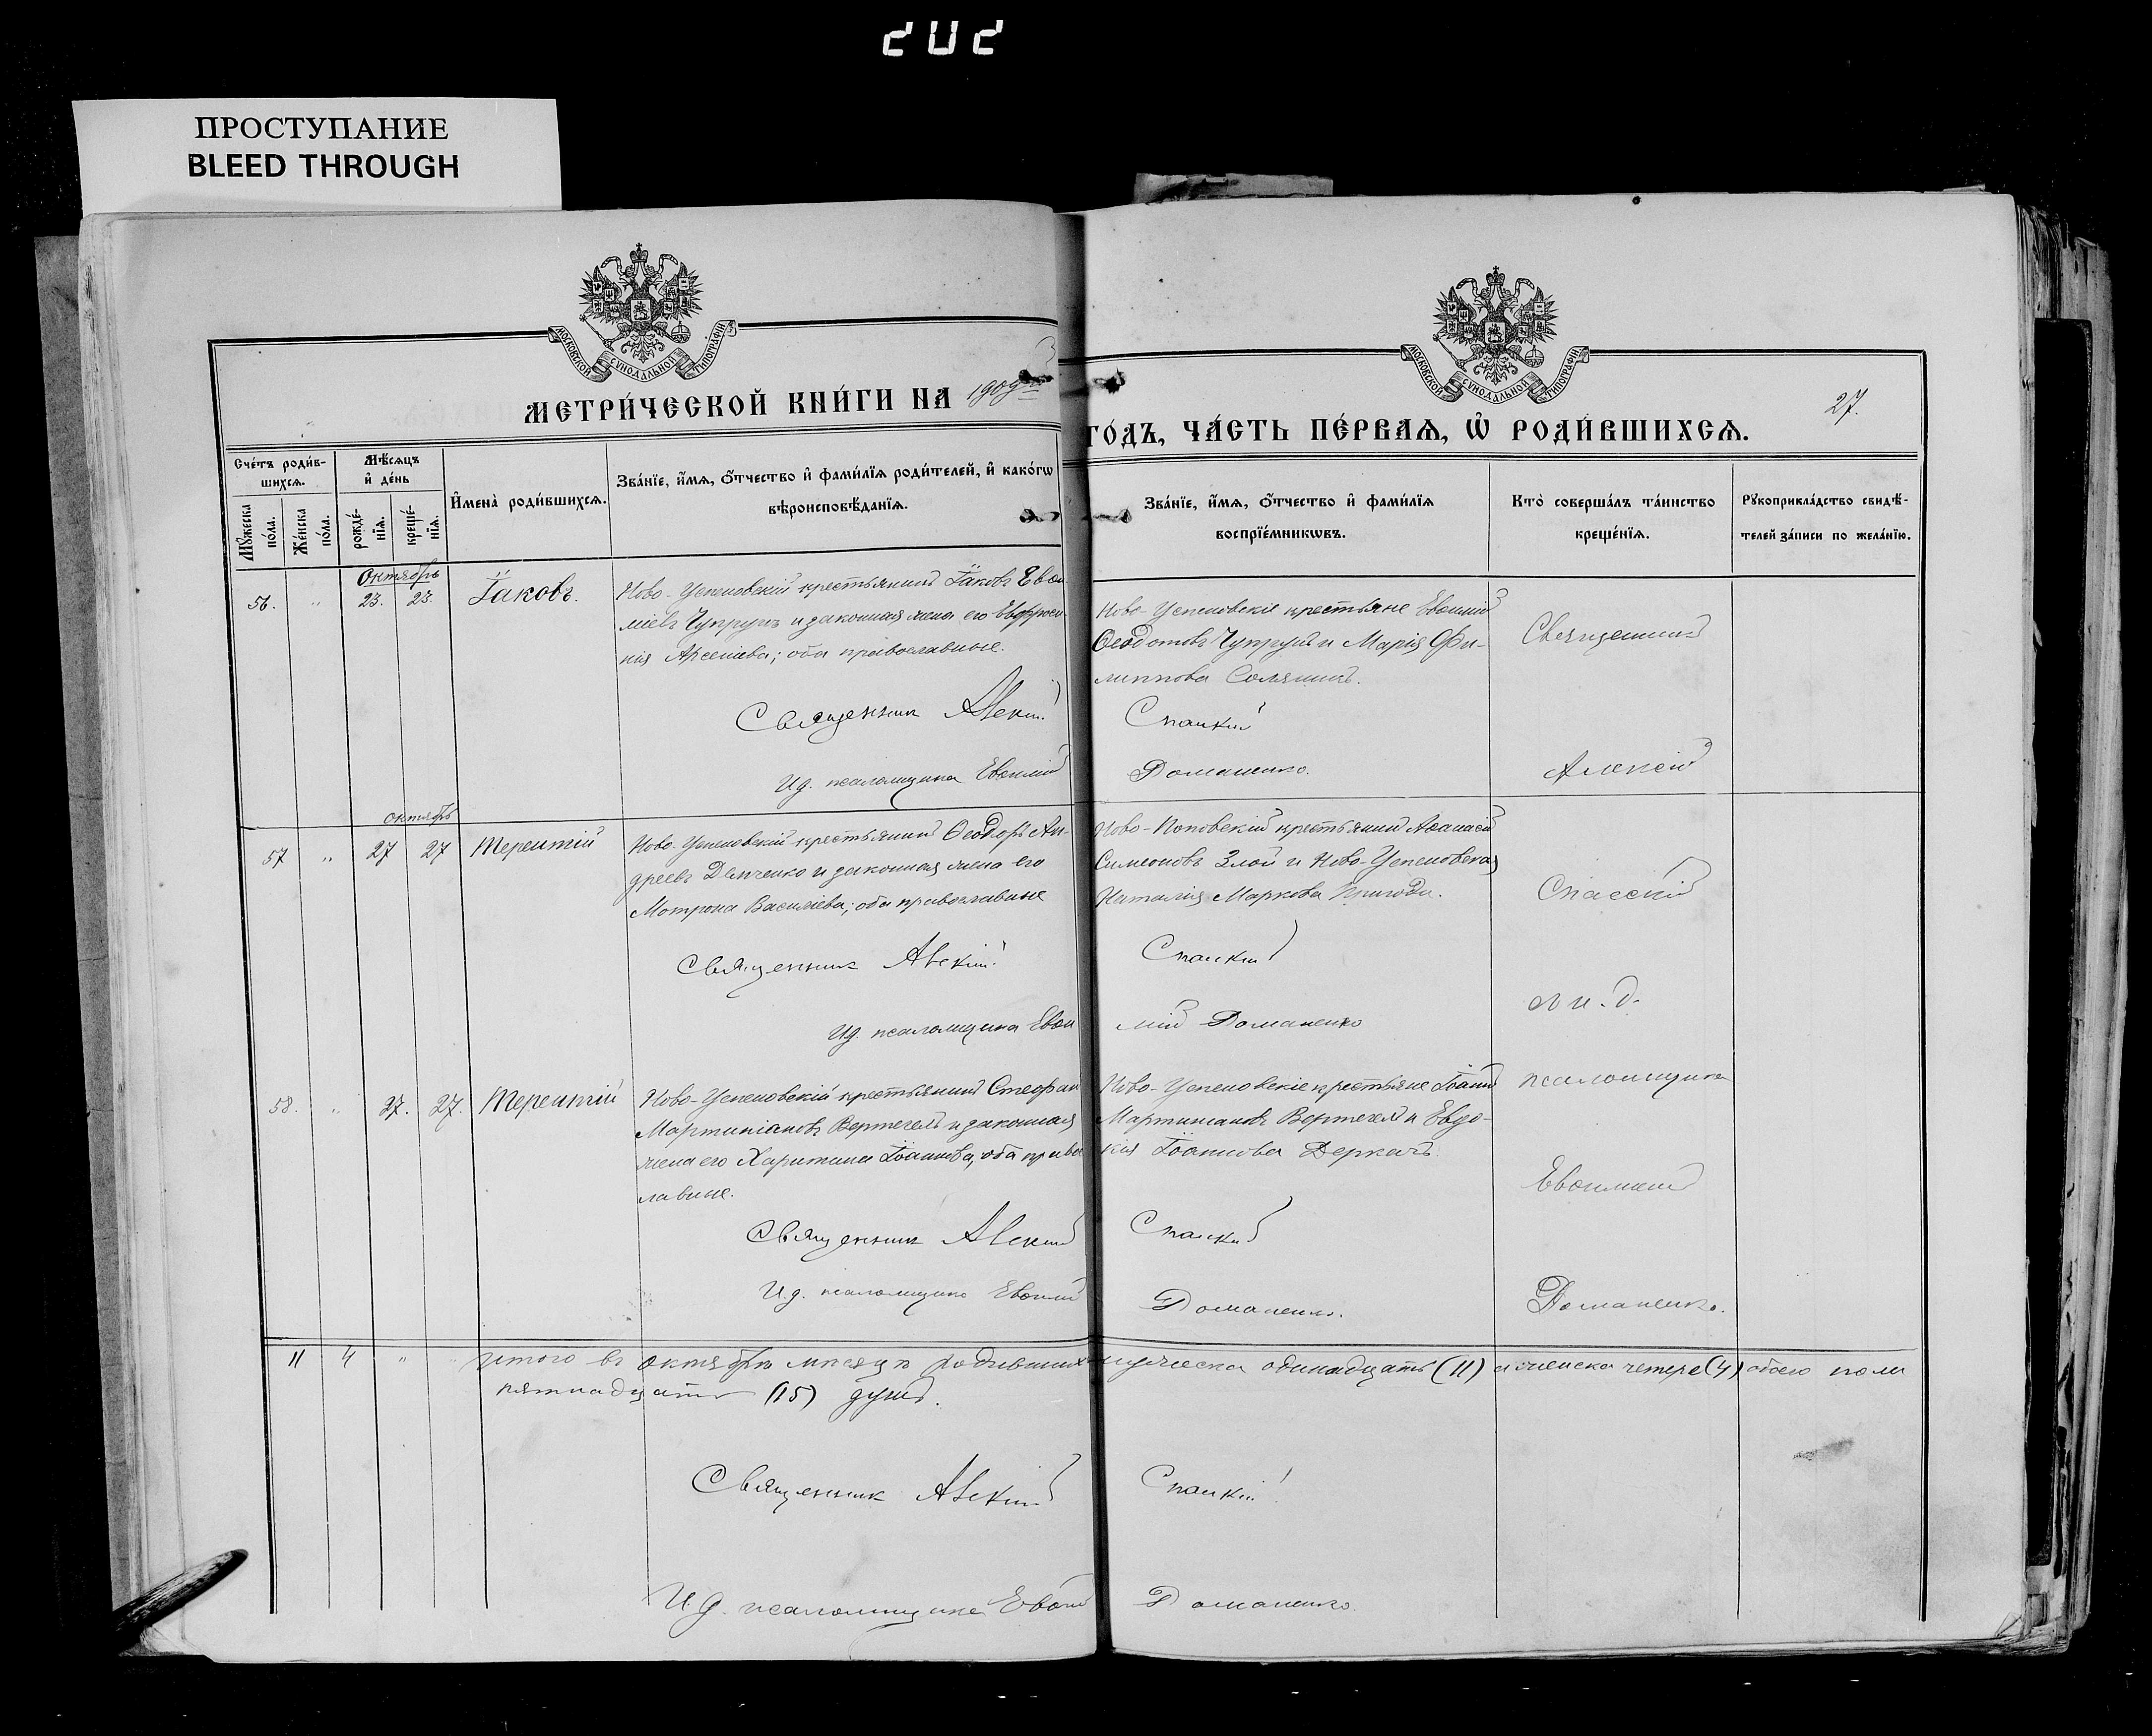 202
ПРОСТУПАНИЕ
BLEED THROUGH
МОСКОВСКОЙ СѴНОДАЛЬНОЙ ТИПОГРАФІИ
МОСКОВСКОЙ СѴНОДАЛЬНОЙ ТИПОГРАФІИ
МЕТРИ́ЧЕСКОЙ КНИ́ГИ НА 1909
ГО́ДЪ, ЧА́СТЬ ПЕ́РВАѦ, Ѡ҆ РОДИ́ВШИХСѦ.
27.
Сче́тъ роди́в-
шихсѧ.
Мꙋ́жеска по́ла.
Же́нска по́ла.
Мѣ́сѧцъ
и҆ де́нь
рожде́-
нїѧ.
креще́-
нїѧ.
И҆мена̀ роди́вшихсѧ.
Зва́нїе, и҆́мѧ, ѻ҆́тчество и҆ фами́лїѧ роди́телей, и҆ како́гѡ
вѣроисповѣ́данїѧ.
Зва́нїе, и҆́мѧ, ѻ҆́тчество и҆ фами́лїѧ
воспрїе́мникѡвъ.
Кто̀ соверша́лъ та́инство
креще́нїѧ.
Рꙋкоприкла́дство свидѣ́-
телей за́писи по жела́нїю.
Октябрь
56. " 23. 23. Іаковъ.
Ново-Успеновскій крестьянинъ Іаковъ Евѳи
міевъ Чупрунъ и законная жена его Евфроси
нія Арсеніева; оба православные.
Священник Алексій
Ид. псаломщика Евѳимій
Ново-Успеновскіе крестьяне Евѳимій
Ѳеодотовъ Чупрунъ и Марія Фи-
липпова Соляникъ.
Спасскій
Доманенко.
Священникъ
Алексій
октябрь
57 " 27 27 Терентій
Ново-Успеновскій крестьянинъ Ѳеодоръ Ан-
дреевъ Демченко и законная жена его
Мотрона Василіева; оба православные
Священник Алексій
Ид. псаломщика Евѳи
Ново-Поповскій крестьянинъ Аѳанасій
Симеоновъ Злой и Ново-Успеновская
Наталія Маркова Пригода.
Спасскій
мій Доманенко
Спасскій
с и. д.
58. " 27. 27. Терентій
Ново-Успеновскій крестьянинъ Стефан
Мартиніановъ Вертегелъ и законная
жена его Харитина Іоаннова, оба право
лавные.
Священник Алексій
И.д. псаломщика Евѳимій
Ново-Успеновскіе крестьяне Іоаннъ
Мартиніановъ Вертегел и Евдо-
кія Іоаннова Деркачъ
Спасскій
Доманенко.
псаломщика
Евѳимій
Доманенко.
11 4 " " итого въ октябрѣ мѣсяцѣ родившихъ мужеска одинадцать (11) а женска четере (4) обоего пола
пятнадцать (15) душъ.
Священник Алексій Спасскій
И.д. псаломщика Евѳим Доманенко.